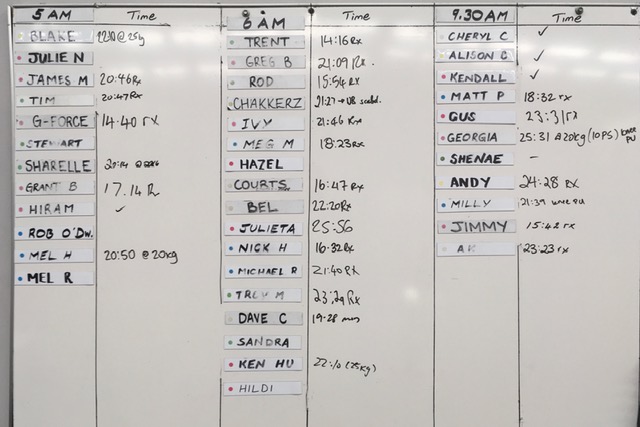 5 AM Time
BLAKE
JULIE N
JAMES M 20:46 Rx
TIM 20:47 Rx
G-FORCE 14:40 rx
STEWART
SHARELLE
GRANT B 17.14 R
HIRAM ✓
ROB O'DW.
MEL H 20:50 @ 20kg
MEL R
6 AM Time
TRENT 14:16 Rx
GREG B 21:09 Rx.
ROD 15:54 Rx
CHAKKERZ 21:27
IVY 21:46 Rx
MEG M 18:23 Rx
HAZEL
COURTS 16:47 Rx
BEL 22:20 Rx
JULIETA 25:56
NICK H 16:32 Rx
MICHAEL R 21:40 RX
TREV M 23:29 Rx
DAVE C 19-28
SANDRA
KEN HU (25kg)
HILDI
9.30 AM Time
CHERYL C ✓
ALISON C ✓
KENDALL ✓
MATT P 18:32 rx
GUS 23:31 rx
GEORGIA 25:31 @ 20kg (10 PS) knee PU
SHENAE –
ANDY 24:28 RX
MILLY 21:39 knee PU
JIMMY 15:42 rx
AK 23:23 rx